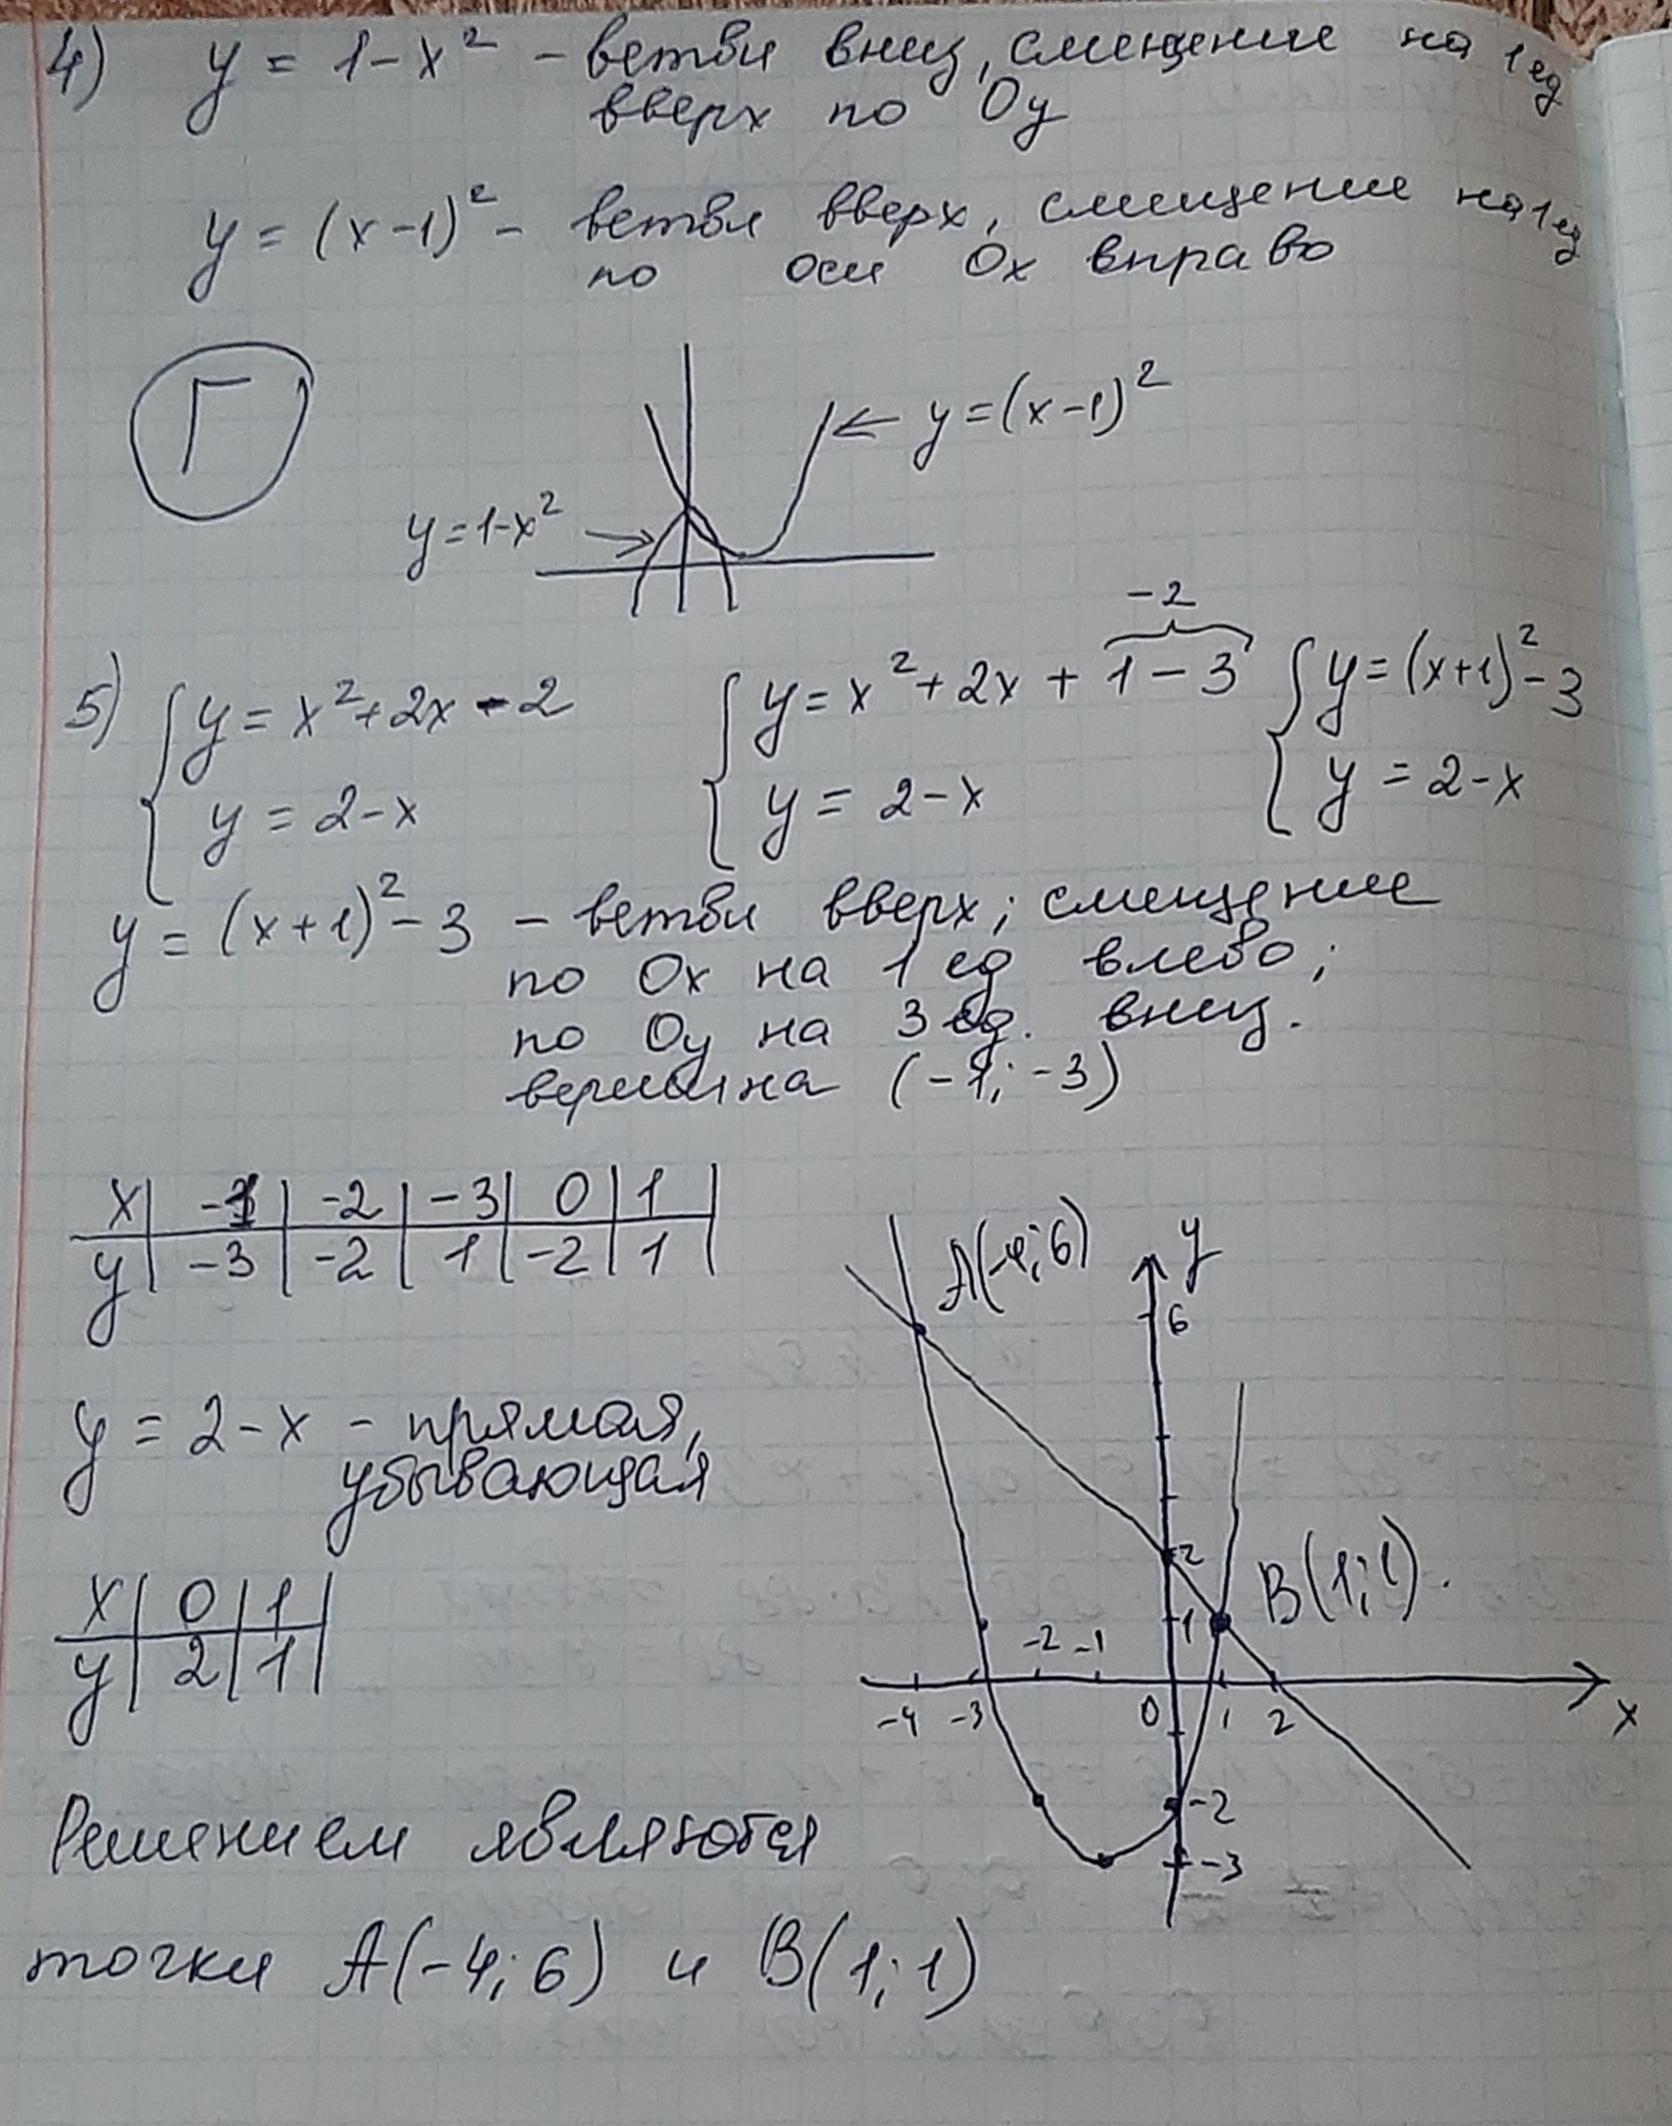 4) y = 1-x² - ветви вниз, смещение на 1 ед
вверх по Оу
y = (x-1)² - ветви вверх, смещение на 1 ед
по оси Ох вправо
Г
← y = (x-1)²
y = 1-x² →
-2
5) { y = x²+2x-2 { y = x²+2x+1-3 { y = (x+1)²-3
y = 2-x y = 2-x y = 2-x
y = (x+1)²-3 - ветви вверх; смещение
по Ох на 1 ед влево;
по Оу на 3 ед. вниз.
вершина (-1; -3)
x | -1 | -2 | -3 | 0 | 1 |
y | -3 | -2 | 1 | -2 | 1 |
A(-4; 6) y
6
y = 2-x - прямая,
убывающая
2
x | 0 | 1 |
y | 2 | 1 |
1 B(1; 1).
-2 -1
-4 -3 0 1 2 x
-2
-3
Решением являются
точки A(-4; 6) и B(1; 1)